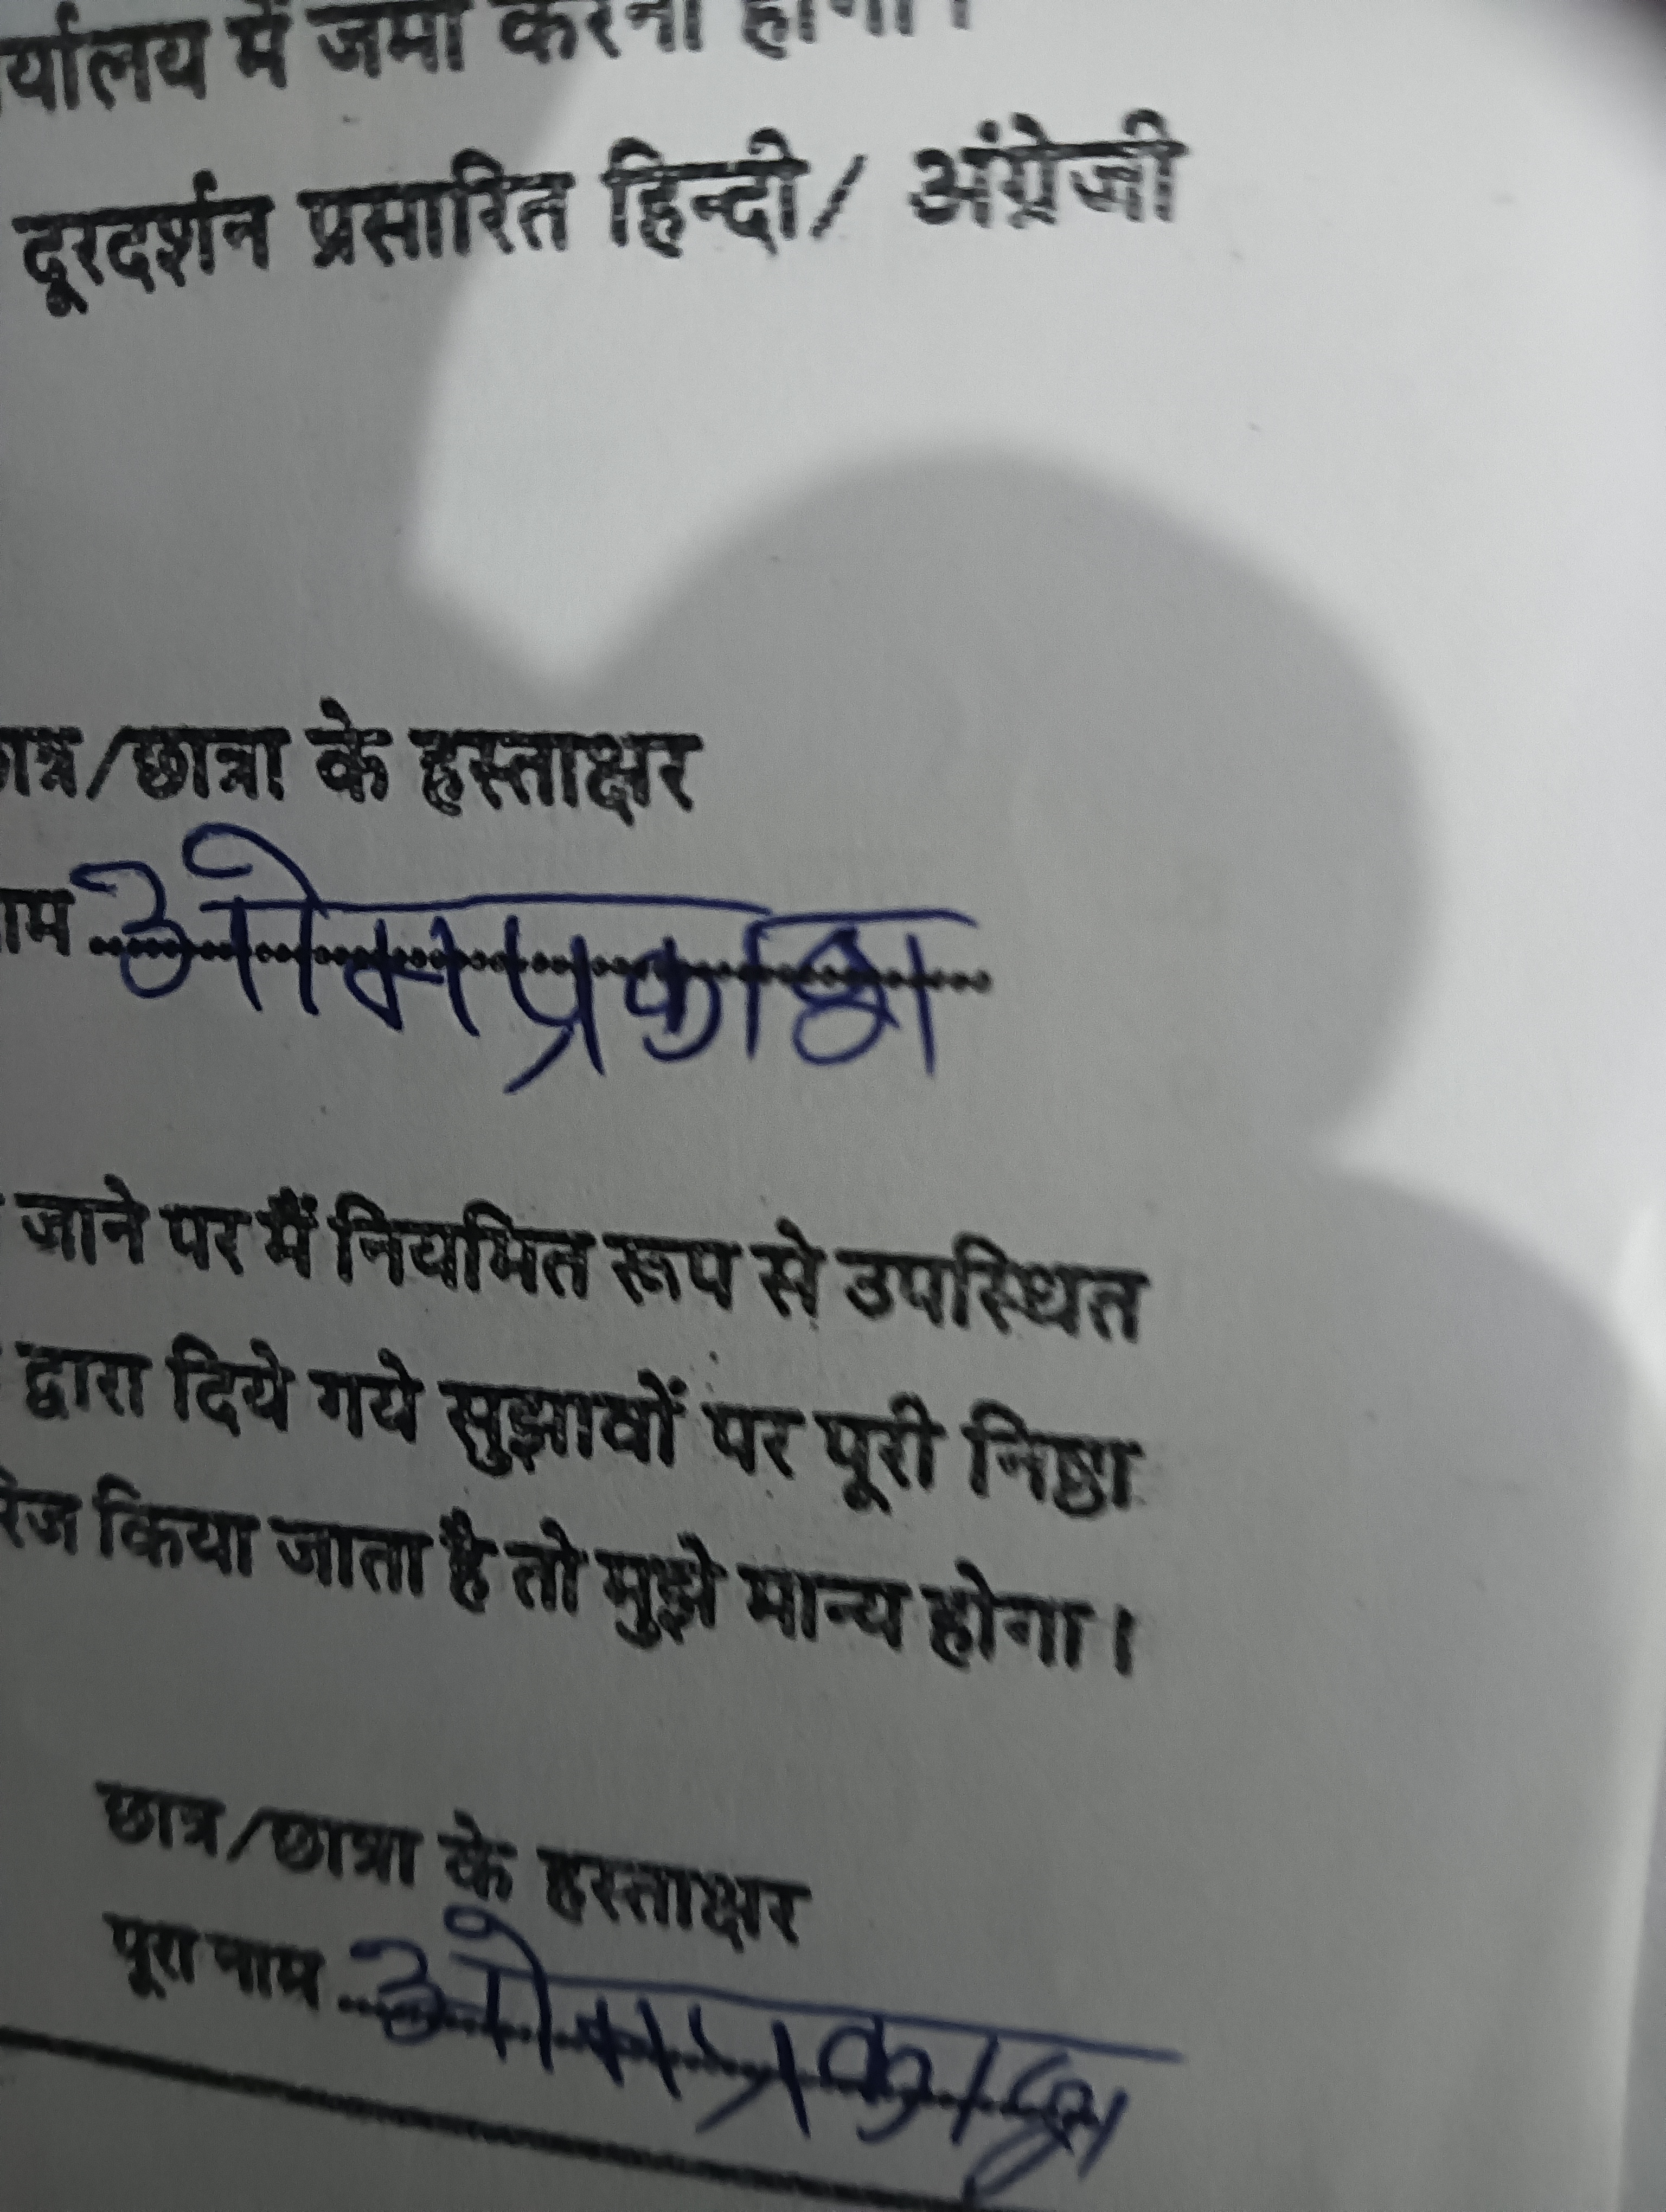 र्यालय में जमा करना होगा।
दूरदर्शन प्रसारित हिन्दी/ अंग्रेजी
ात्र/छात्रा के हस्ताक्षर
ाम ओमप्रकाश
जाने पर मैं नियमित रूप से उपस्थित
द्वारा दिये गये सुझावों पर पूरी निष्ठा
रिज किया जाता है तो मुझे मान्य होगा।
छात्र/छात्रा के हस्ताक्षर
पूरा नाम ओमप्रकाश